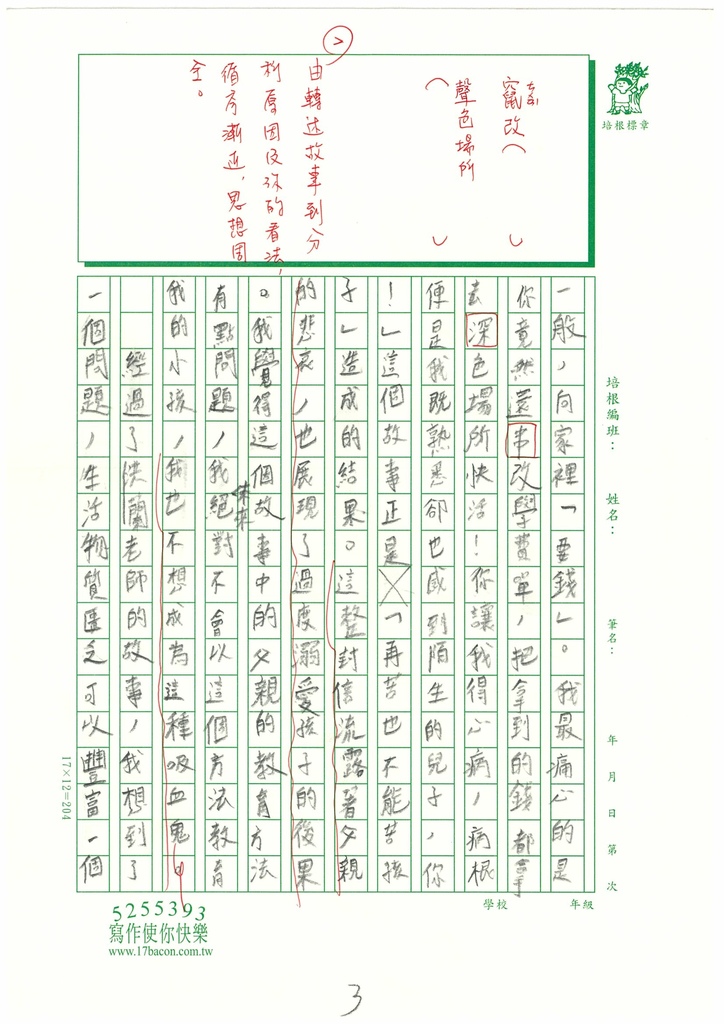 培根標章
ㄘㄨㄢˋ
竄改（　）
聲色場所
（　）
>
由轉述故事到分
析原因及你的看法，
循序漸進，思想周
全。
培根編班：　姓名：　筆名：　年　月　日　第　次
學校　年級
一般，向家裡「要錢」。我最痛心的是
你竟然還串改學費單，把拿到的錢都拿
去深色場所快活！你讓我得心病，病根
便是我既熟悉卻也感到陌生的兒子，你
！」這個故事正是「再苦也不能苦孩
子」造成的結果。這整封信流露著父親
的悲哀，也展現了過度溺愛孩子的後果
。我覺得這個故事中的父親的教育方法
有點問題，我未來絕對不會以這個方法教育
我的小孩，我也不想成為這種吸血鬼。
經過了洪蘭老師的故事，我想到了
一個問題，生活物質匱乏可以豐富一個
17×12=204
5255393
寫作使你快樂
www.17bacon.com.tw
3